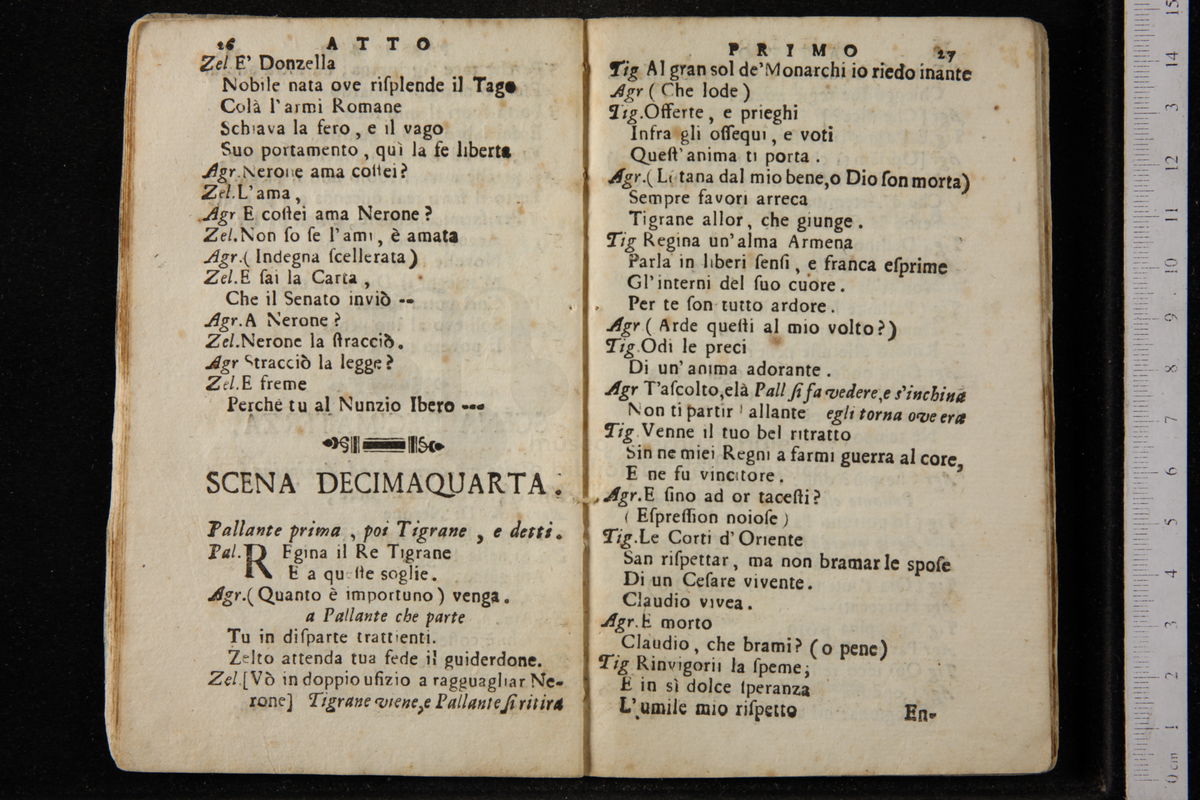 26 ATTO
Zel E' Donzella
Nobile nata ove riſplende il Tago
Colà l'armi Romane
Schiava la fero, e il vago
Suo portamento, quì la fe liberta
Agr. Nerone ama coſtei?
Zel. L'ama,
Agr E coſtei ama Nerone?
Zel. Non ſo ſe l'ami, è amata
Agr. (Indegna ſcellerata)
Zel. E ſai la Carta,
Che il Senato inviò --
Agr. A Nerone?
Zel. Nerone la ſtracciò.
Agr Stracciò la legge?
Zel. E freme
Perchè tu al Nunzio Ibero ---
SCENA DECIMAQUARTA.
Pallante prima, poi Tigrane, e detti.
Pal. REgina il Re Tigrane
E a queſte soglie.
Agr. (Quanto è importuno) venga.
a Pallante che parte
Tu in diſparte trattienti.
Zelto attenda tua fede il guiderdone.
Zel. [Vò in doppio ufizio a ragguagliar Ne-
rone] Tigrane viene, e Pallante ſi ritira
PRIMO 27
Tig Al gran sol de' Monarchi io riedo inante
Agr (Che lode)
Tig. Offerte, e prieghi
Infra gli oſſequi, e voti
Queſt' anima ti porta.
Agr. (Lontana dal mio bene, o Dio ſon morta)
Sempre favori arreca
Tigrane allor, che giunge.
Tig Regina un'alma Armena
Parla in liberi ſenſi, e franca eſprime
Gl'interni del ſuo cuore.
Per te ſon tutto ardore.
Agr (Arde queſti al mio volto?)
Tig. Odi le preci
Di un'anima adorante.
Agr T'aſcolto, elà Pall ſi fa vedere, e s'inchina
Non ti partir Pallante egli torna ove era
Tig Venne il tuo bel ritratto
Sin ne miei Regni a farmi guerra al core,
E ne fu vincitore.
Agr. E ſino ad or taceſti?
(Eſpreſſion noioſe)
Tig. Le Corti d'Oriente
San riſpettar, ma non bramar le spoſe
Di un Ceſare vivente.
Claudio vivea.
Agr. E morto
Claudio, che brami? (o pene)
Tig Rinvigorii la ſpeme;
E in sì dolce ſperanza
L'umile mio riſpetto
En-